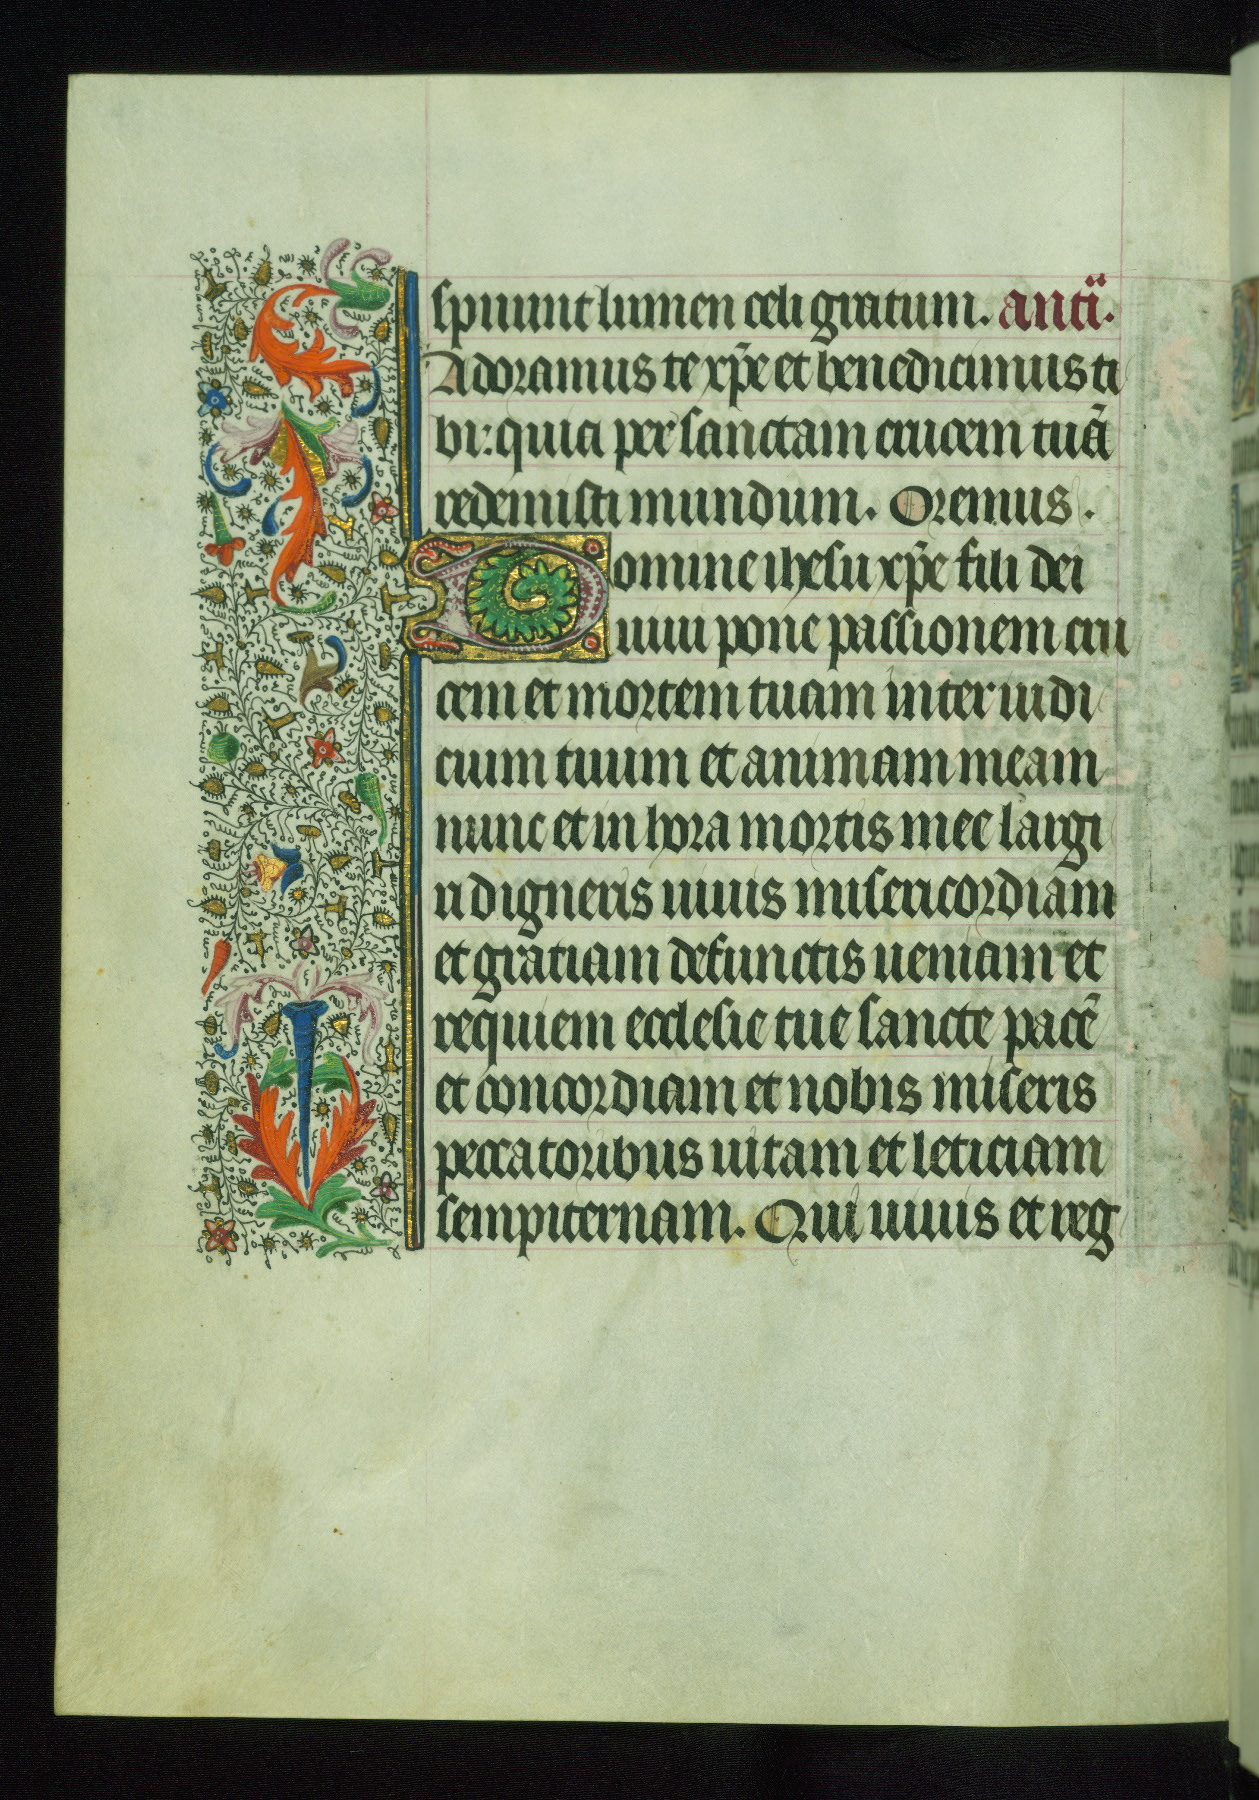 spiunt lumen celi gratum. antī.
Adoramus te xp̄e et benedicimus ti
bi: quia per sanctam crucem tuā
redemisti mundum. Oremus.
Domine ihesu xp̄e fili dei
uiui pone passionem cru
cem et mortem tuam inter iudi
cium tuum et animam meam
nunc et in hora mortis mee largi
ri digneris uiuis misericordiam
et gratiam defunctis ueniam et
requiem ecclesie tue sancte pacē
et concordiam et nobis miseris
peccatoribus uitam et leticiam
sempiternam. Qui uiuis et reg